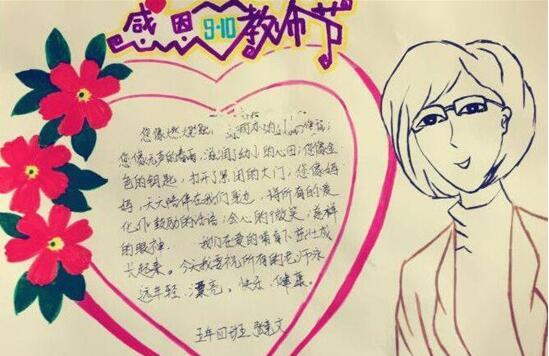 感恩9·10教师节
您像燃烧的
您像无声的春雨,滋润了幼小的心田;您像金
色的钥匙,打开了黑闭的大门,您像妈
妈,天天陪伴在我们身边,将所有的爱
化作鼓励的话语,会心的微笑,慈祥
的眼神. 我们在爱的哺育下茁壮成
长起来。今天我要祝所有的老师永
远年轻、漂亮。快乐、健康。
五年四班